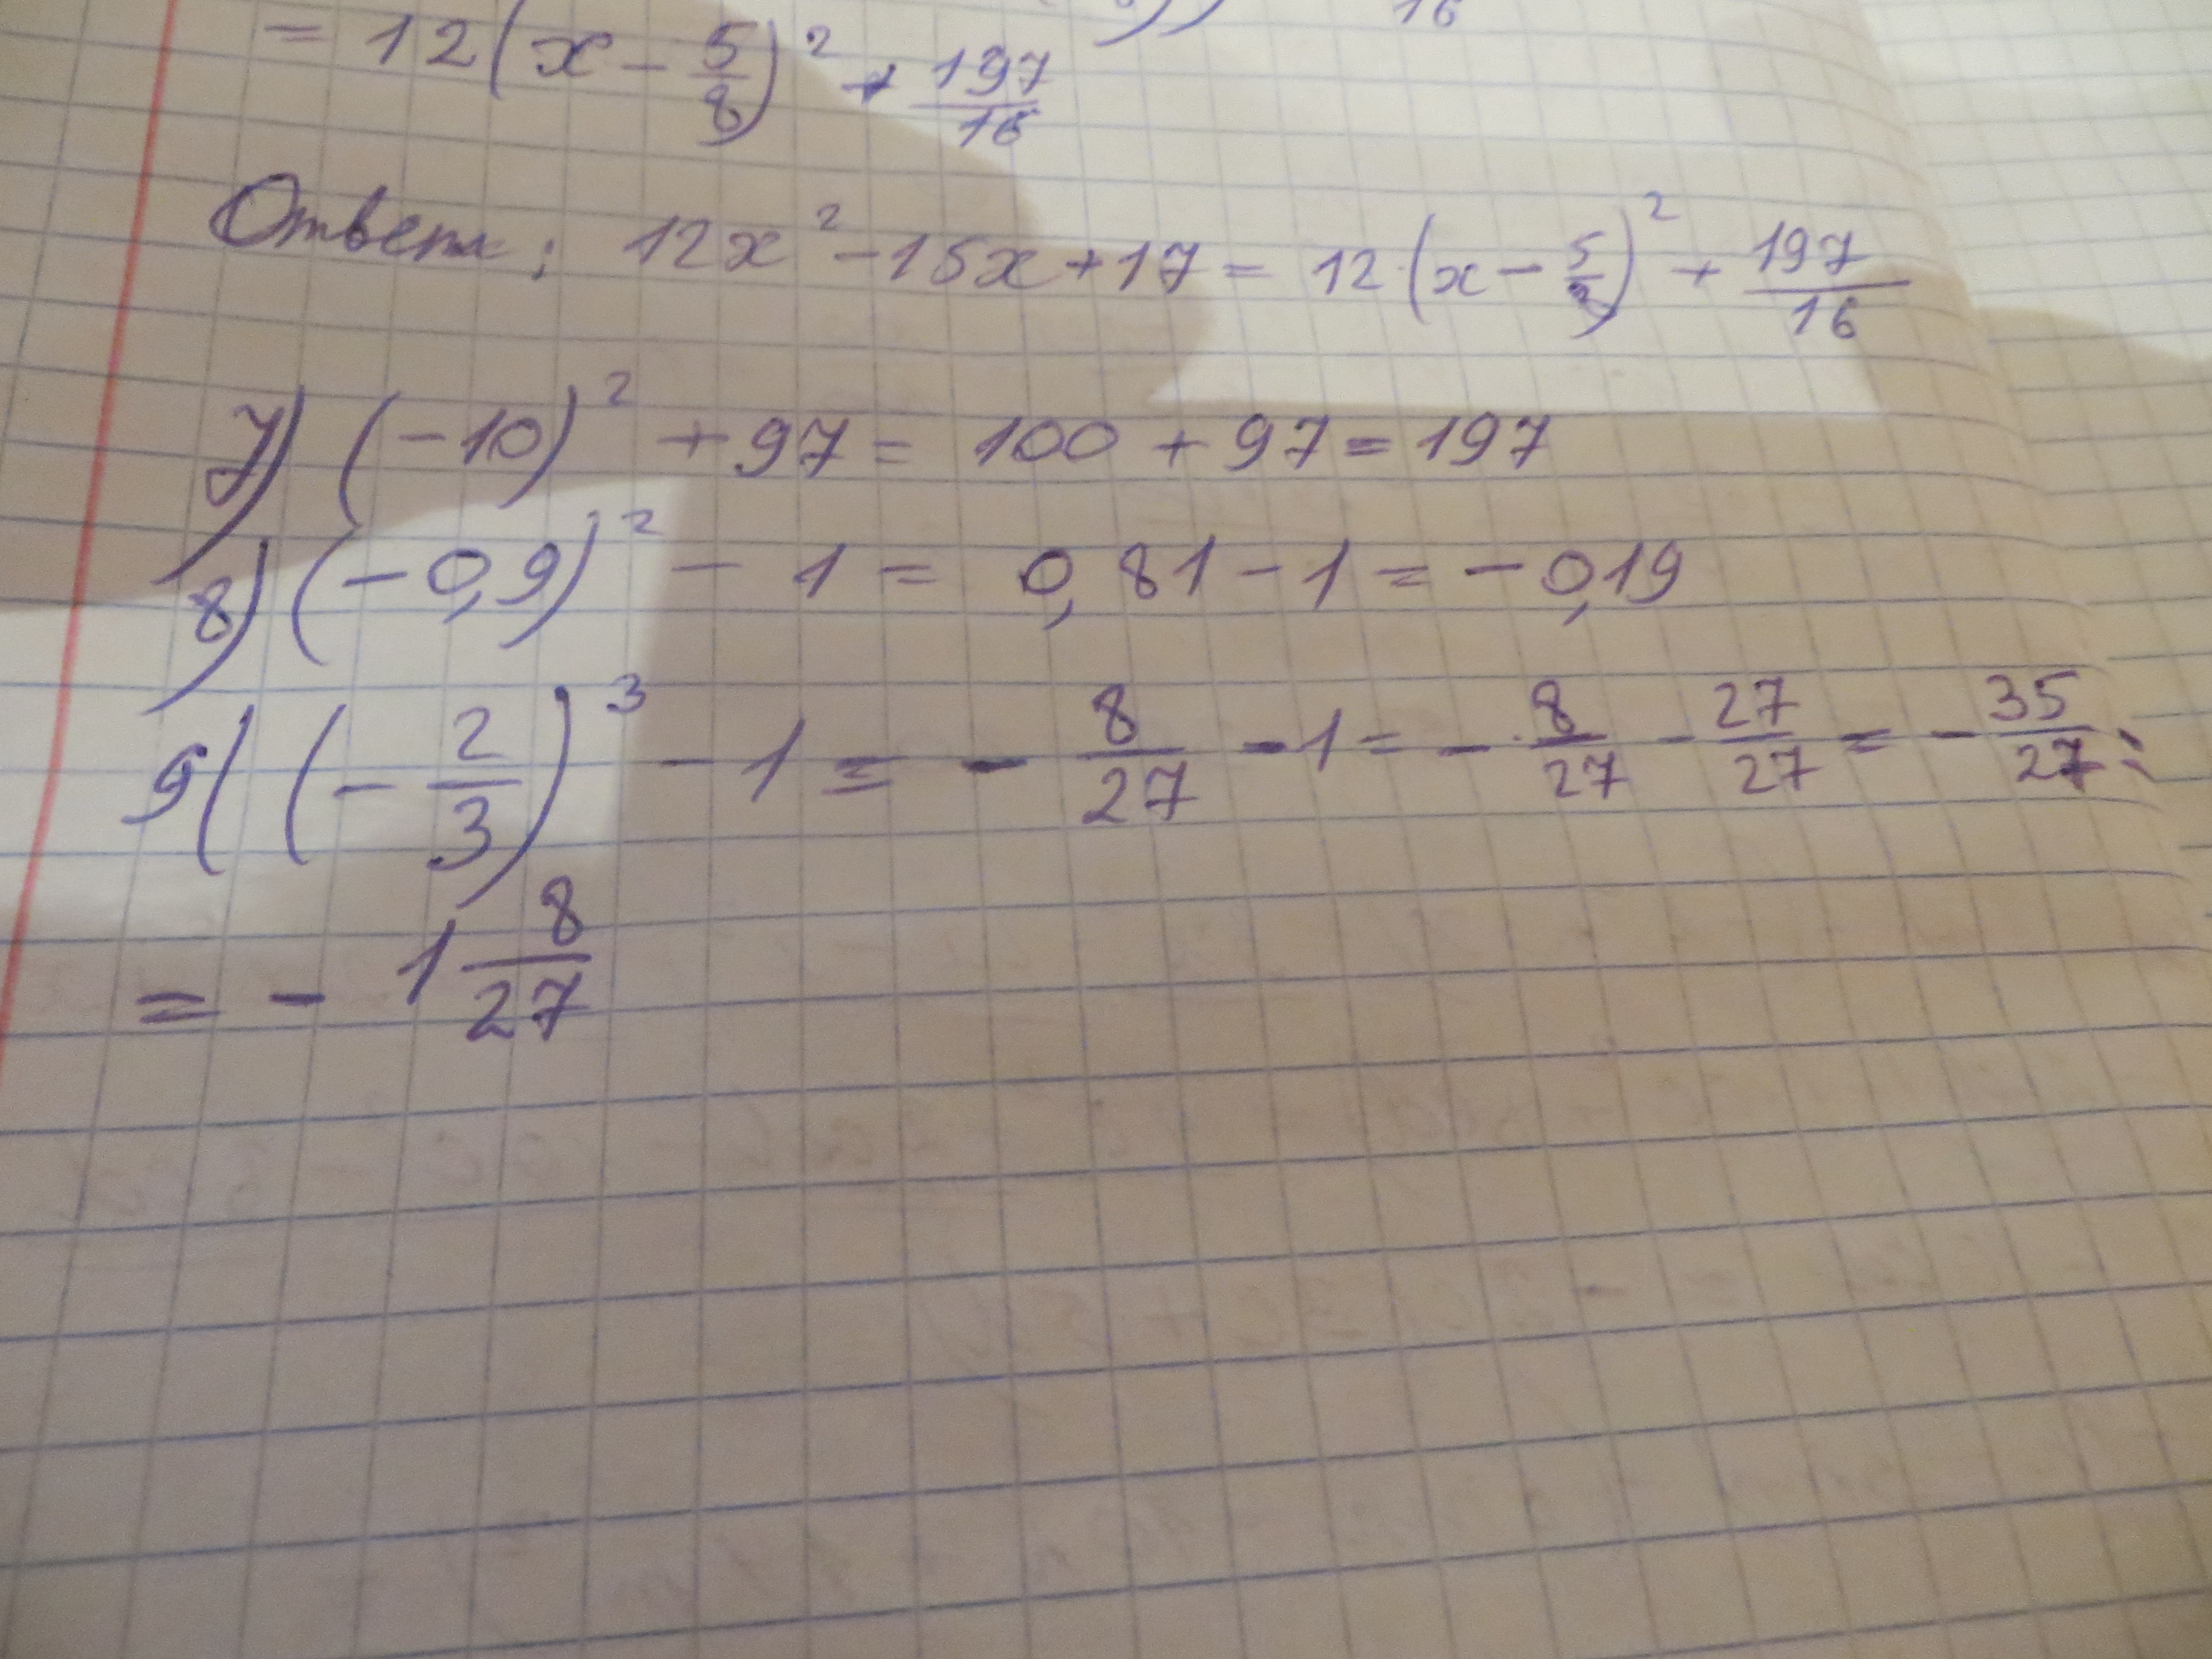 16
= 12(x - 5/8)² + 197/16
Ответ: 12x² - 15x + 17 = 12·(x - 5/8)² + 197/16
7) (-10)² + 97 = 100 + 97 = 197
8) (-0,9)² - 1 = 0,81 - 1 = -0,19
9( (-2/3)³ - 1 = -8/27 - 1 = -8/27 - 27/27 = -35/27 =
= -1 8/27